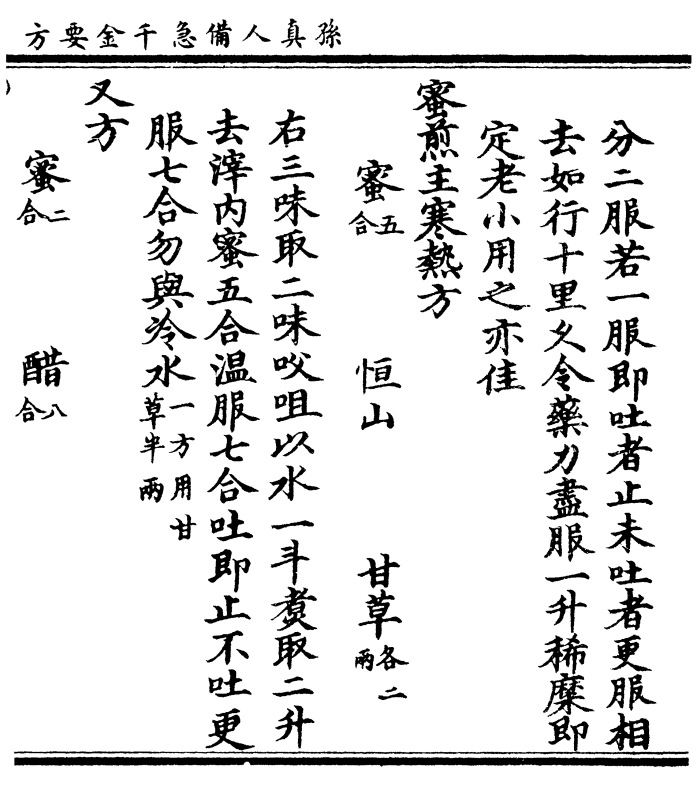 孫真人備急千金要方
分二服若一服即吐者止未吐者更服相
去如行十里久令藥力盡服一升稀糜即
定老小用之亦佳
蜜煎主寒熱方
蜜五合 恒山 甘草各二兩
右三味取二味㕮咀以水一斗煑取二升
去滓内蜜五合温服七合吐即止不吐更
服七合勿與冷水一方用甘草半兩
又方
蜜二合 醋八合